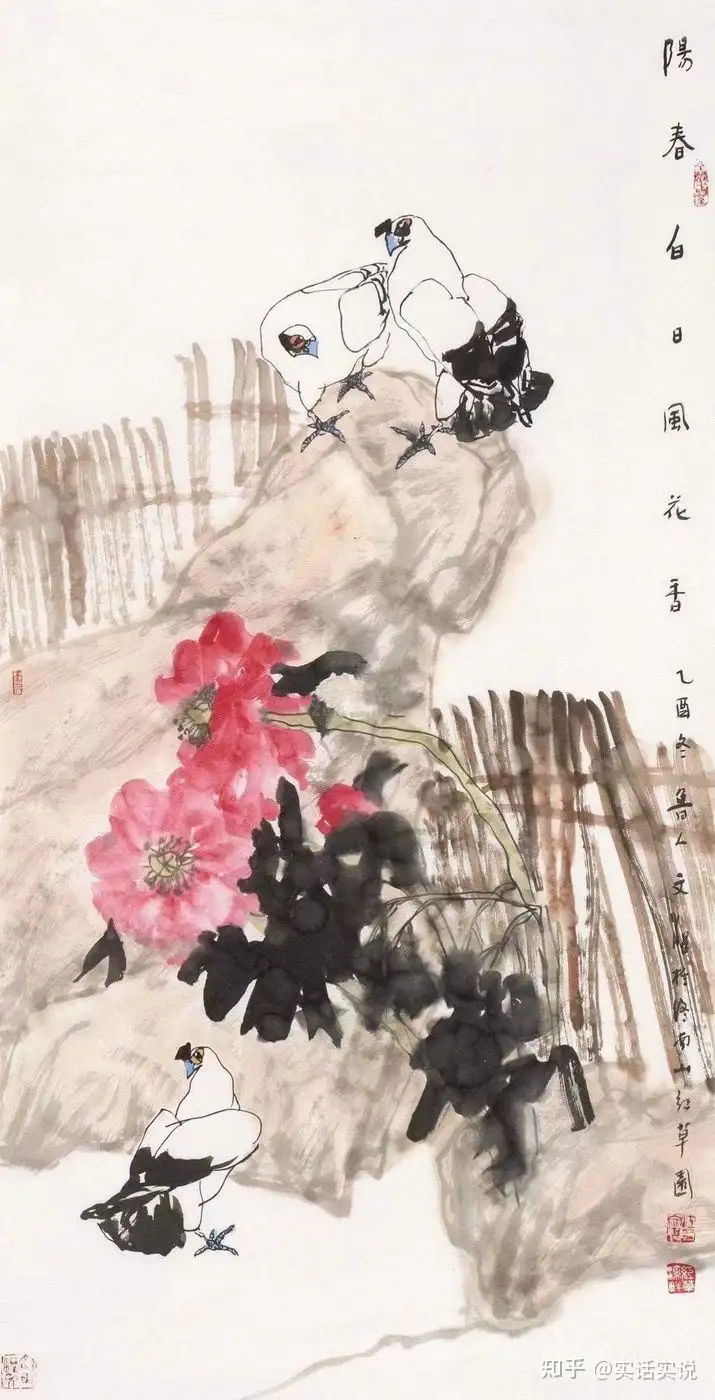 陽春白日風花香 乙酉冬魯人文湛於終南山紅草園
知乎 @实话实说